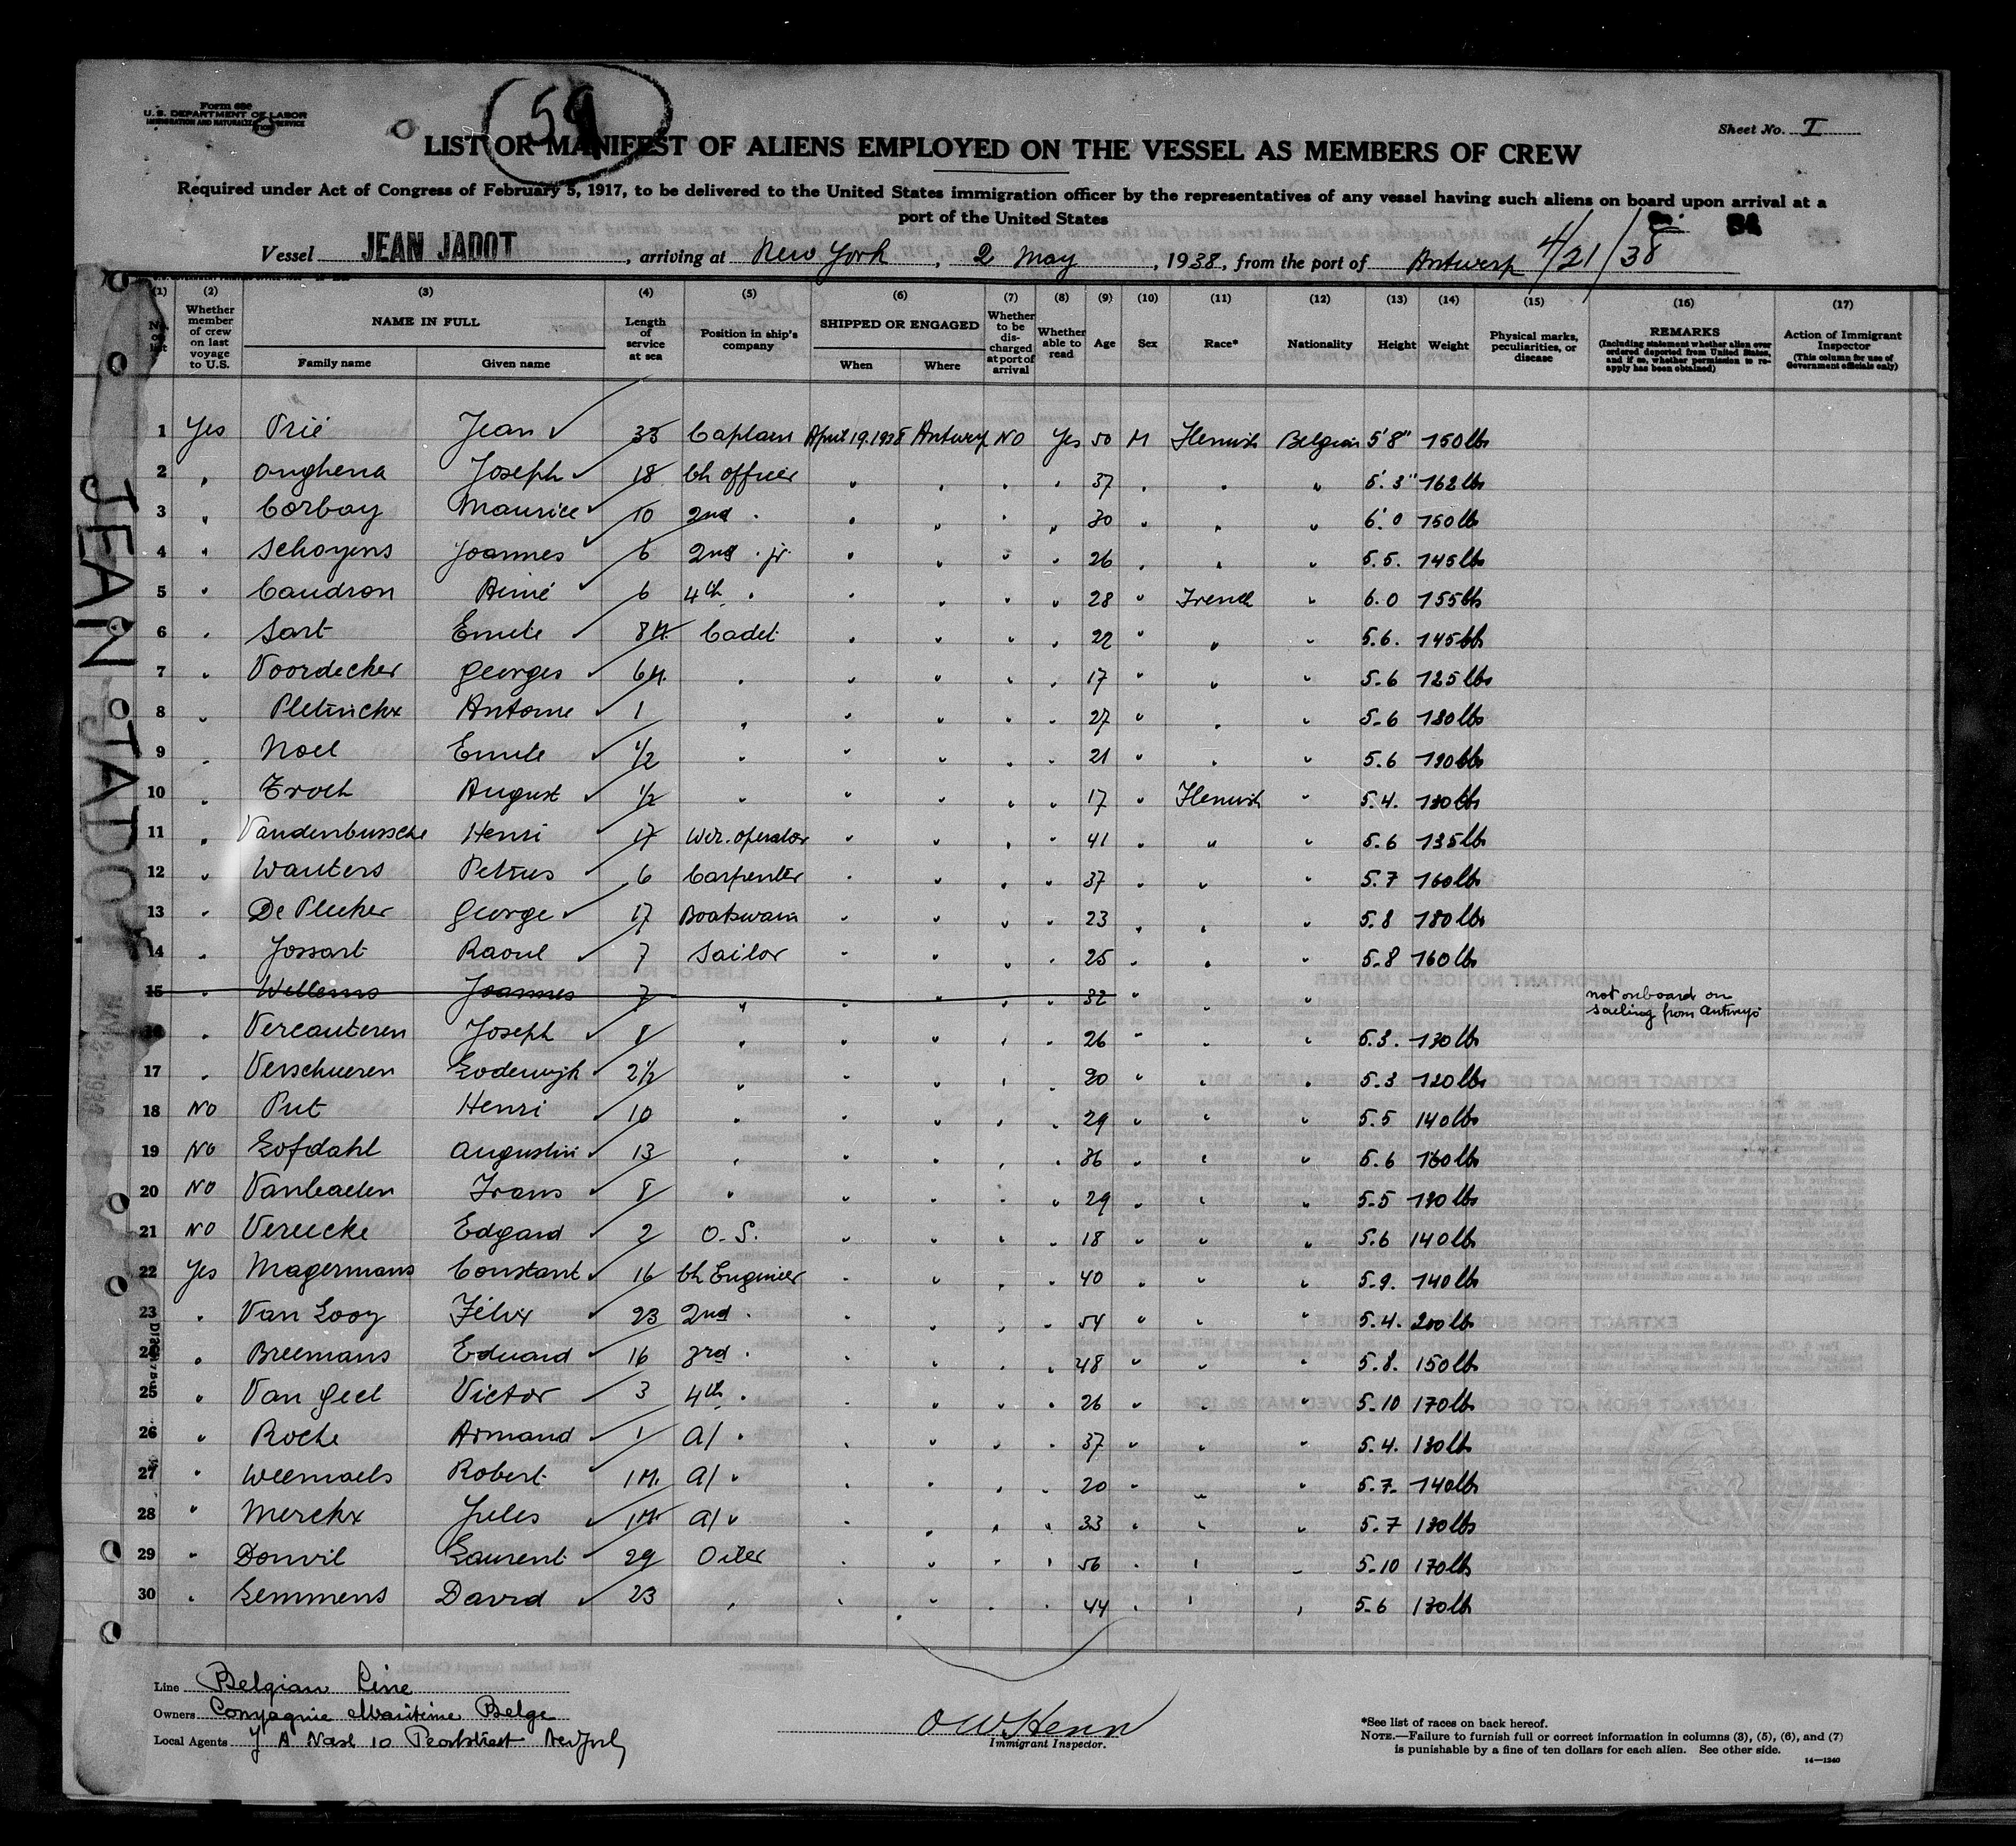 Form 680
U. S. DEPARTMENT OF LABOR
IMMIGRATION AND NATURALIZATION SERVICE
59
Sheet No. I
LIST OR MANIFEST OF ALIENS EMPLOYED ON THE VESSEL AS MEMBERS OF CREW
Required under Act of Congress of February 5, 1917, to be delivered to the United States immigration officer by the representatives of any vessel having such aliens on board upon arrival at a
port of the United States
Vessel JEAN JADOT, arriving at New York, 2 May, 1938, from the port of Antwerp 4/21/38
(1) (2) (3) (4) (5) (6) (7) (8) (9) (10) (11) (12) (13) (14) (15) (16) (17)
No. on list
Whether member of crew on last voyage to U.S.
NAME IN FULL
Family name Given name
Length of service at sea
Position in ship's company
SHIPPED OR ENGAGED
When Where
Whether to be discharged at port of arrival
Whether able to read
Age
Sex
Race*
Nationality
Height
Weight
Physical marks, peculiarities, or disease
REMARKS
(Including statement whether alien ever ordered deported from United States, and if so, whether permission to reapply has been obtained)
Action of Immigrant Inspector
(This column for use of Government officials only)
1 Yes Prié Jean 33 Captain April 19.1938 Antwerp NO Yes 50 M Flemish Belgian 5'8" 150lbs
2 " Onghena Joseph 18 Ch officer " " " " 37 " " " 5'.3" 162lbs
3 " Corbay Maurice 10 2nd " " " " " 30 " " " 6'.0 150lb
4 " Schoyens Joannes 6 2nd " jr. " " " " 26 " " " 5.5. 145lbs
5 " Caudron Aimé 6 4th " " " " " 28 " French " 6.0 155lbs
6 " Sart Emile 8M. Cadet " " " " 22 " " " 5.6. 145lbs
7 " Voordecker Georges 6M. " " " " " 17 " " " 5.6 125lbs
8 " Pletinckx Antoine 1 " " " " " 27 " " " 5.6 130lbs
9 " Noel Emile 1/2 " " " " " 21 " " " 5.6 130lbs
10 " Troch August 1/2 " " " " " 17 " Flemish " 5.4. 130lbs
11 " Vandenbussche Henri 17 Wir. operator " " " " 41 " " " 5.6 135lbs
12 " Wauters Petrus 6 Carpenter " " " " 37 " " " 5.7 160lbs
13 " De Plecker George 17 Boatswain " " " " 23 " " " 5.8 180lbs
14 " Jossart Raoul 7 Sailor " " " " 25 " " " 5.8 160lbs
15 " Wellems Joannes 7 " " " " " 32 " " " not onboard on
sailing from Antwerp
16 " Vercauteren Joseph 8 " " " " " 26 " " " 5.3. 130lbs
17 " Verschueren Lodewijk 2 1/2 " " " " " 20 " " " 5.3 120lbs
18 NO Put Henri 10 " " " " " 29 " " " 5.5 140lbs
19 NO Lofdahl Augustin 13 " " " " " 36 " " " 5.6 160lbs
20 NO Vanbaelen Frans 8 " " " " " 29 " " " 5.5 130lbs
21 NO Vereecke Edgard 2 O.S. " " " " 18 " " " 5.6 140lbs
22 Yes Magermans Constant 16 Ch Engineer " " " " 40 " " " 5.9. 140lbs
23 " Van Looy Félix 23 2nd " " " " " 54 " " " 5.4. 200lbs
24 " Breemans Eduard 16 3rd " " " " " 48 " " " 5.8. 150lbs
25 " Van Geel Victor 3 4th " " " " " 26 " " " 5.10 170lbs
26 " Roche Armand 1 A/ " " " " " 37 " " " 5.4. 130lbs
27 " Weemaels Robert 1M. A/ " " " " " 20 " " " 5.7. 140lbs
28 " Merckx Jules 1M. A/ " " " " " 33 " " " 5.7 130lbs
29 " Donvil Laurent 29 Oiler " " " " 56 " " " 5.10 170lbs
30 " Lemmens David 23 " " " " " 44 " " " 5.6 130lbs
JEAN JADOT
Line Belgian Line
Owners Compagnie Maritime Belge
Local Agents New York
Immigrant Inspector.
*See list of races on back hereof.
NOTE.—Failure to furnish full or correct information in columns (3), (5), (6), and (7)
is punishable by a fine of ten dollars for each alien. See other side.
14—1240